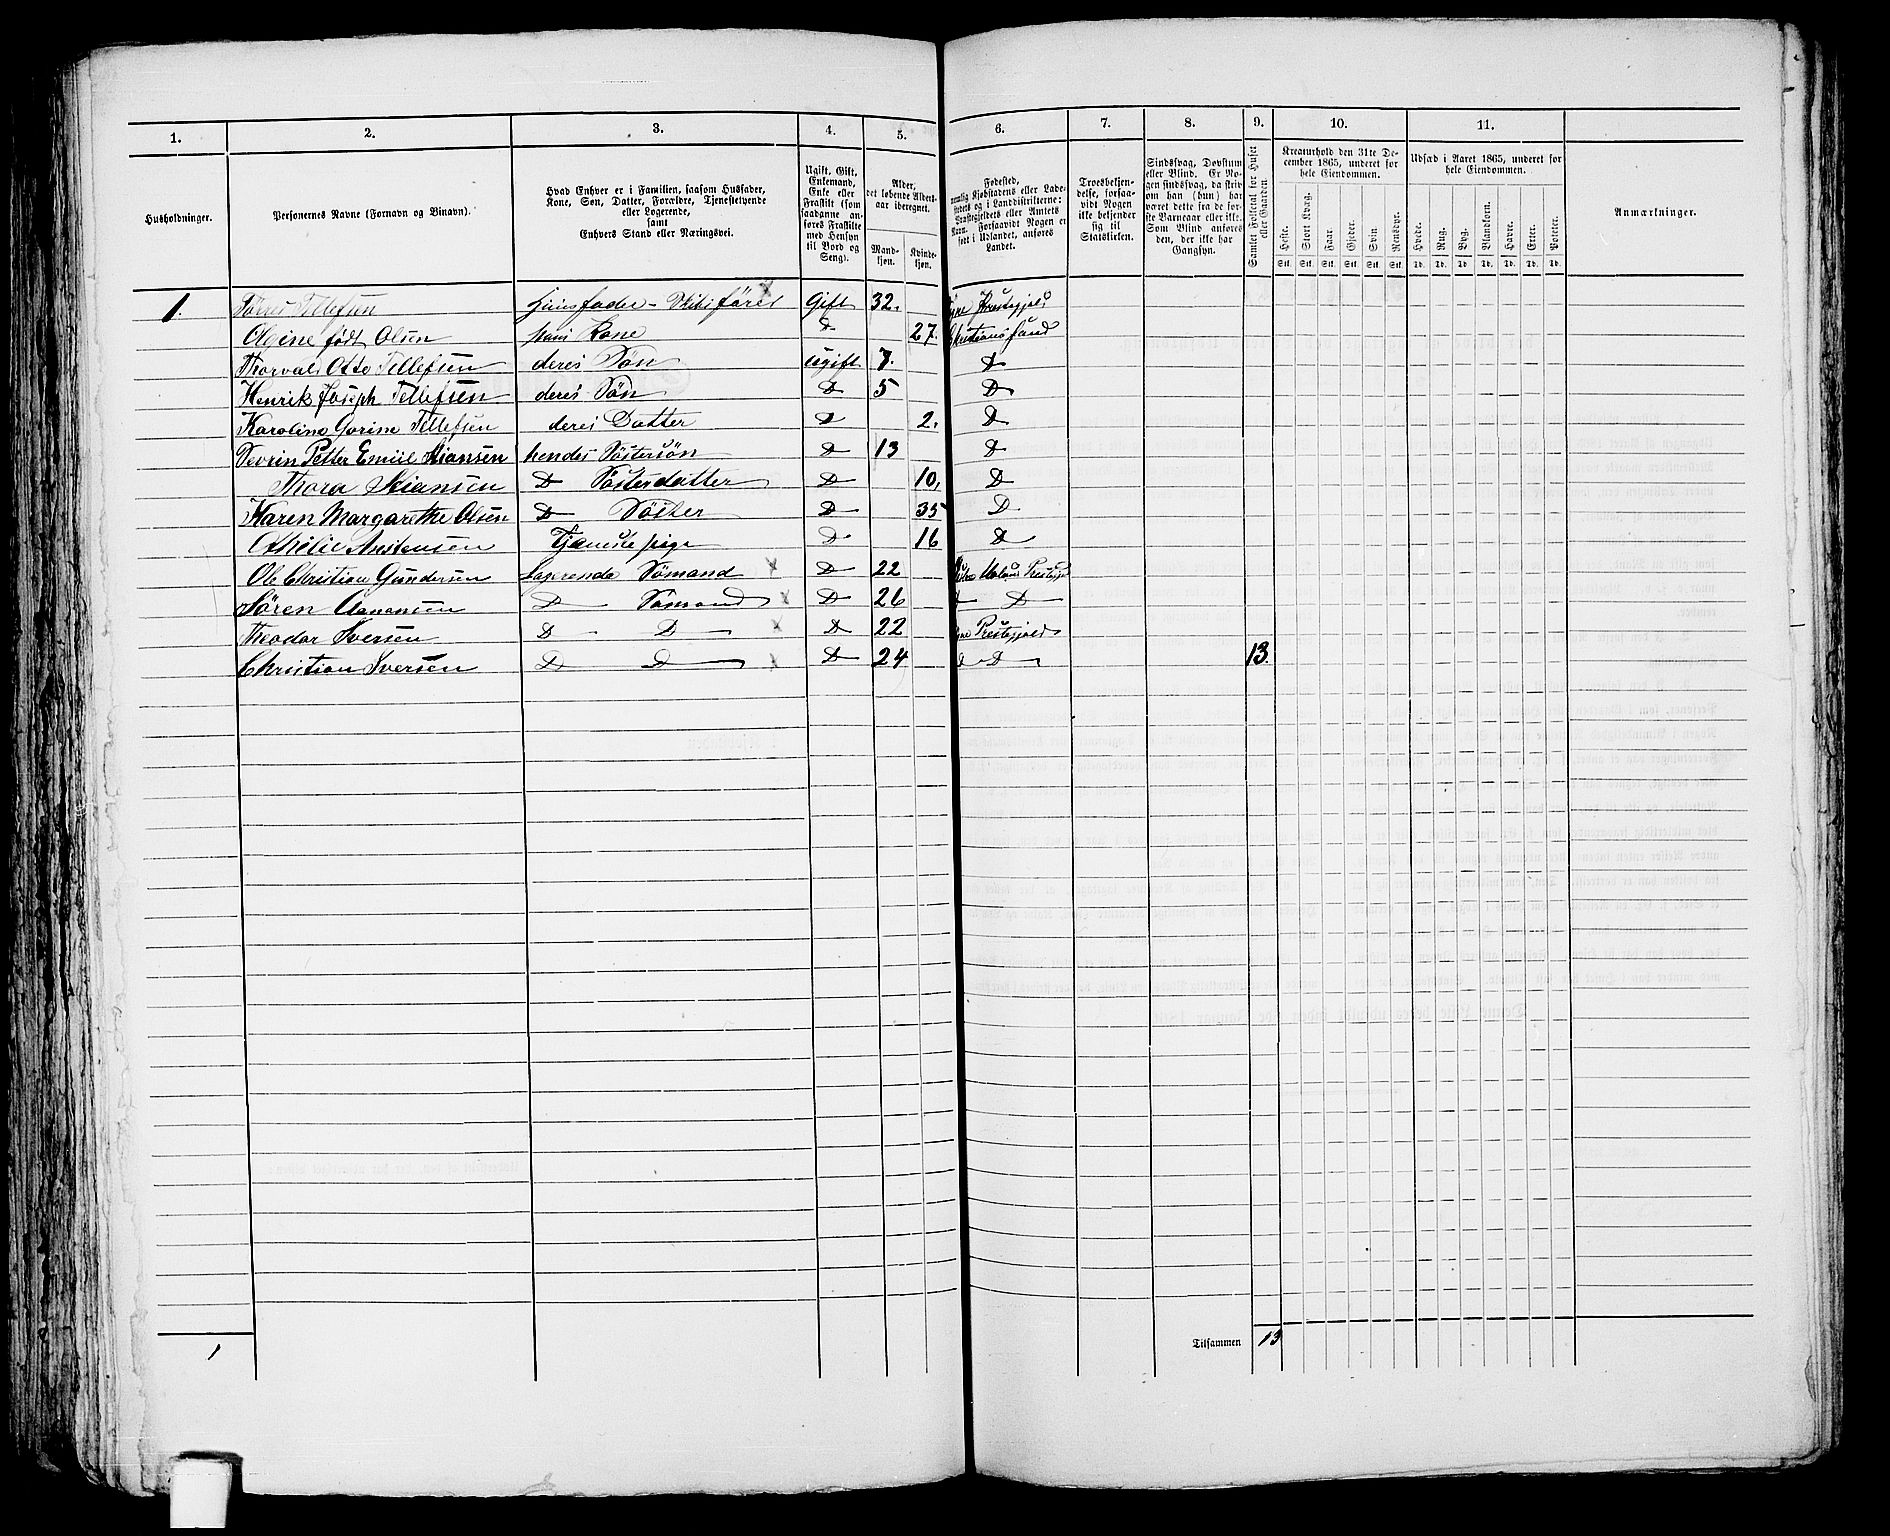 1. 2. 3. 4. 5. 6. 7. 8. 9. 10. 11.
Husholdninger.
Personernes Navne (Fornavn og Binavn).
Hvad Enhver er i Familien, saasom Husfader,
Kone, Søn, Datter, Forældre, Tjenestetyende
eller Logerende,
samt
Enhvers Stand eller Næringsvei.
Ugift, Gift,
Enkemand,
Enke eller
Fraskilt (som
saadanne an-
føres Fraskilte
med Hensyn
til Bord og
Seng).
Alder,
det løbende Alders-
aar iberegnet.
Mand-
kjøn.
Kvinde-
kjøn.
Fødested,
nemlig Kjøbstadens eller Lade-
stedets og i Landdistrikterne:
Præstegjeldets eller Amtets
Navn. Forsaavidt Nogen er
født i Udlandet, anføres
Landet.
Troesbekjen-
delse, forsaa-
vidt Nogen
ikke bekjender
sig til
Statskirken.
Sindssvag, Døvstum
eller Blind. Er No-
gen sindssvag, da skriv
om han (hun) har
været dette fra de før-
ste Barneaar eller ikke.
Som Blind anføres
den, der ikke har
Gangsyn.
Samlet Folketal for Huset
eller Gaarden.
Kreaturhold den 31te De-
cember 1865, underet for
hele Eiendommen.
Heste. Stort Kvæg. Faar. Gjeder. Svin. Rensdyr.
Stk. Stk. Stk. Stk. Stk. Stk.
Udsæd i Aaret 1865, underet for
hele Eiendommen.
Hvede. Rug. Byg. Blandkorn. Havre. Erter. Poteter.
Td. Td. Td. Td. Td. Td. Td.
Anmærkninger.
1. Tørres Tellefsen Huusfader - Skibsfører Gift 32. Præstegjeld
født Olsen hans Kone D 27. Christiansund
Thorvald Otto Tellefsen deres Søn ugift 7. D
Henrik Joseph Tellefsen deres Søn D 5 D
Karoline Gorine Tellefsen deres Datter D 2. D
Sevrin Petter Emiil Stiansen hendes Søstersøn D 13 D
Thora Stiansen D Søsterdatter D 10. D
Karen Margarethe Olsen D Søster D 35 D
Tjenestepige D 16 D
Ole Christian Gundersen Logerende Sømand x D 22 Præstegj
Søren D Sømand x D 26 D D
Theodor Iversen D D x D 22 Præstegjeld
Christian Iversen D D x D 24 D D 13.
1 Tilsammen 13